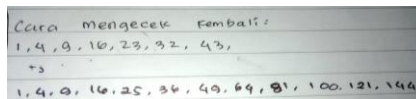 Cara mengecek kembali:
1, 4, 9, 16, 23, 32, 43,
+3
1, 4, 9, 16, 25, 36, 49, 64, 81, 100, 121, 144